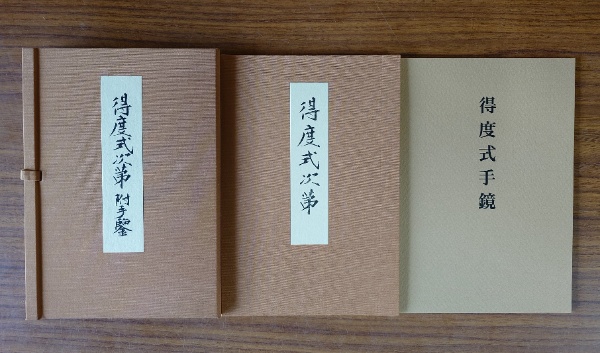 得度式次第 附手鑒
得度式次第
得度式手鏡